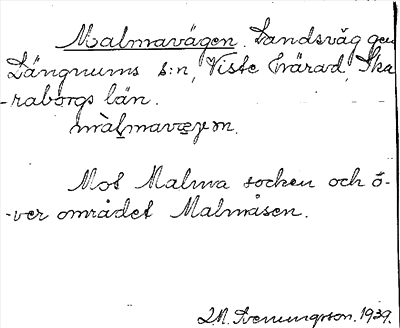 Malmavägen. Landsväg gen
Långnums s:n, Viste härad, Ska
-raborgs län.
màlmavęgən.
Mot Malma socken och ö-
-ver området Malmåsen.
J.N. Svenungsson. 1939.